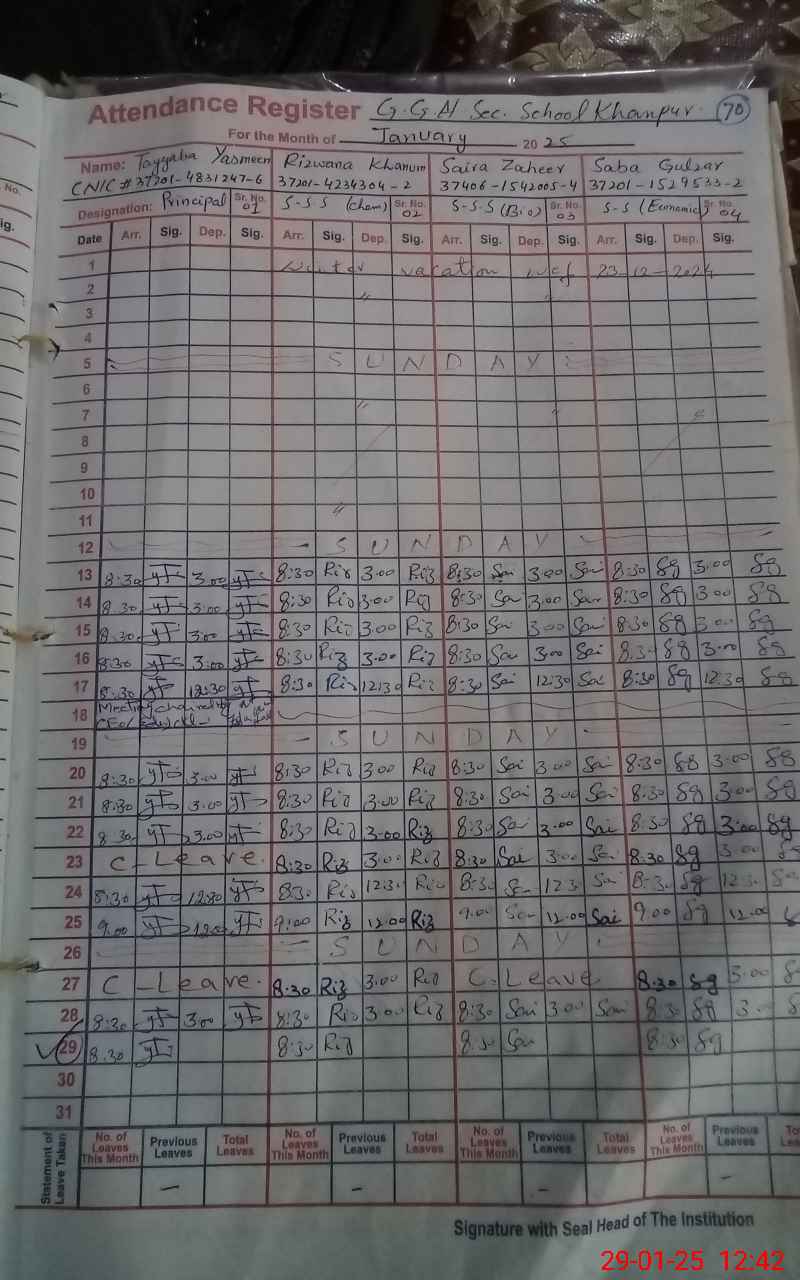 Attendance Register G.G.H Sec. School Khanpur. 70
For the Month of January 2025
Name: Tayyaba Yasmeen Rizwana Khanum Saira Zaheer Saba Gulzar
CNIC # 37201-4831247-6 37201-4234304-2 37406-1542005-4 37201-1529533-2
Designation: Principal Sr. No. 01 S-S-S (Chem) Sr. No. 02 S-S-S (Bio) Sr. No. 03 S-S (Economic) Sr. No. 04
Date Arr. Sig. Dep. Sig. Arr. Sig. Dep. Sig. Arr. Sig. Dep. Sig. Arr. Sig. Dep. Sig.
1 Winter vacation w.e.f 23-12-2024
2 〃
3
4
5 SUNDAY
6
7 〃
8
9
10
11 〃
12 SUNDAY
13 8:30 3.00 8:30 Riz 3.00 Riz 8:30 Sai 3.00 Sai 8:30 Sg 3.00 Sg
14 8.30 3:00 8:30 Riz 3.00 Riz 8:30 Sai 3.00 Sai 8:30 Sg 3.00 Sg
15 8.30 3.00 8:30 Riz 3.00 Riz 8:30 Sai 3.00 Sai 8:30 Sg 3.00 Sg
16 8:30 3.00 8:30 Riz 3.00 Riz 8:30 Sai 3.00 Sai 8:30 Sg 3.00 Sg
17 8:30 12:30 8:30 Riz 12:30 Riz 8:30 Sai 12:30 Sai 8:30 Sg 12:30 Sg
18 Meeting
CEO
19 SUNDAY
20 8:30 3.00 8:30 Riz 3.00 Riz 8:30 Sai 3.00 Sai 8:30 Sg 3:00 Sg
21 8:30 3.00 8:30 Riz 3.00 Riz 8:30 Sai 3.00 Sai 8:30 Sg 3.00 Sg
22 8.30 3.00 8:30 Riz 3.00 Riz 8:30 Sai 3.00 Sai 8:30 Sg 3:00 Sg
23 C-Leave. 8:30 Riz 3.00 Riz 8:30 Sai 3.00 Sai 8.30 Sg 3.00
24 8:30 12:30 8:30 Riz 12:30 Riz 8:30 Sai 12:30 Sai 8:30 Sg 12:30
25 9.00 12.00 9:00 Riz 12.00 Riz 9.00 Sai 12.00 Sai 9.00 Sg 12.00
26 SUNDAY
27 C-Leave. 8:30 Riz 3.00 Riz C-Leave 8:30 Sg 3.00
28 8:30 3.00 8:30 Riz 3.00 Riz 8:30 Sai 3.00 Sai 8:30 Sg 3.00
29 8.30 8:30 Riz 8:30 Sai 8:30 Sg
30
31
Statement of Leave Taken No. of Leaves This Month Previous Leaves Total Leaves No. of Leaves This Month Previous Leaves Total Leaves No. of Leaves This Month Previous Leaves Total Leaves No. of Leaves This Month Previous Leaves
– – – –
Signature with Seal Head of The Institution
29-01-25 12:42